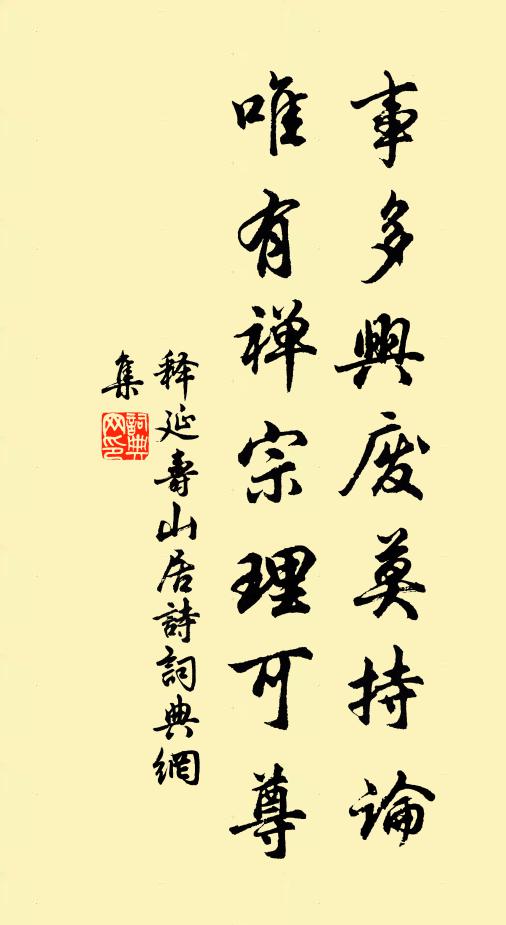 事多興廢莫持論
唯有禅宗理可尊
释延壽山居詩詞典網
集
詞典
网印